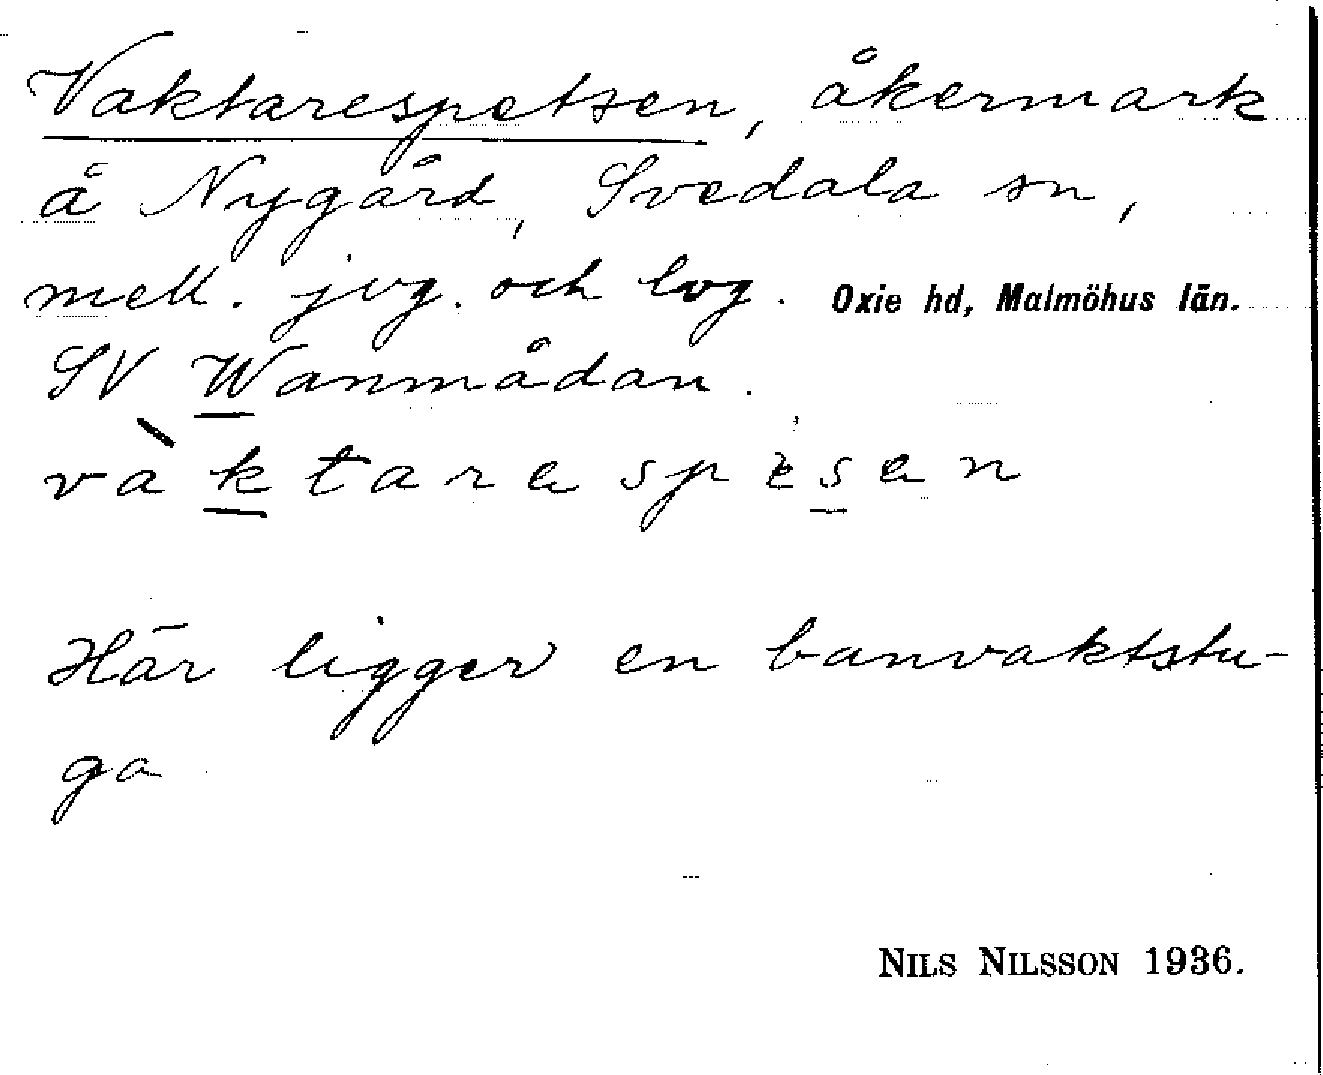 Vaktarespetsen, åkermark
å Nygård, Svedala sn,
mell. jvg. och lvg. Oxie hd, Malmöhus län.
SV Wanmådan.
vàktarespesen
Här ligger en banvaktstu-
ga
NILS NILSSON 1936.